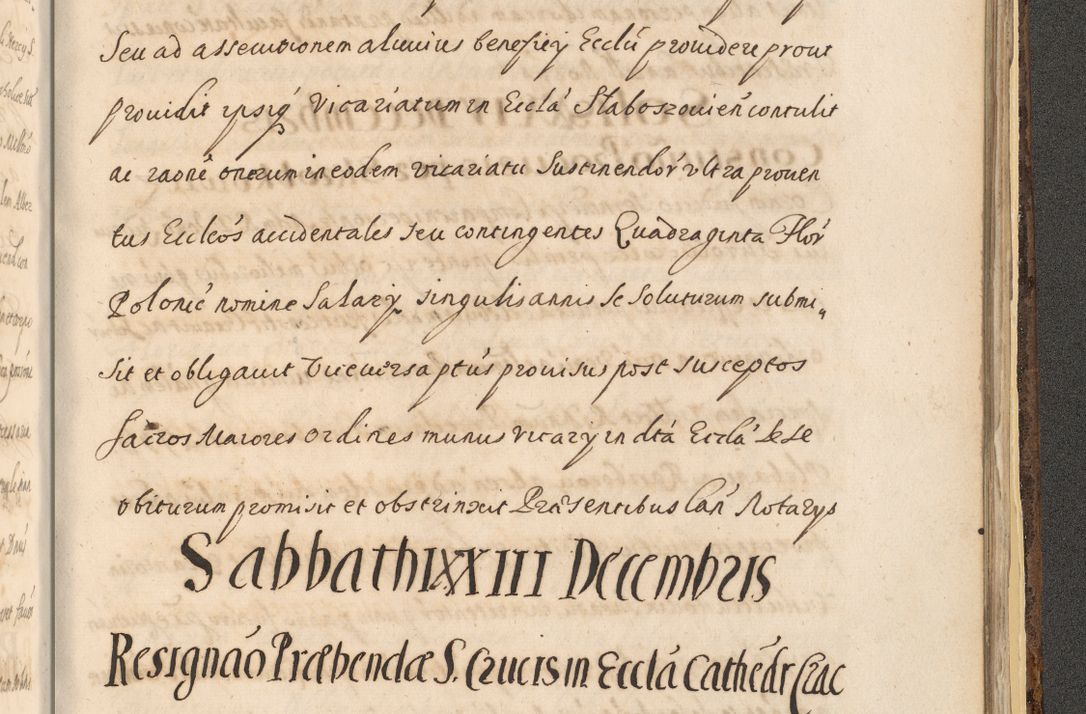 Seu ad assecutionem alicuius beneficy Ecclĩ prouidere prout
prouidit ipsiq́ Vicariatum in Ecclá Slaboszouień contulit
ac raoné onerum in eodem vicariatu Sustinendór vltra prouen
tus Eccleós accidentales seu contingentes Quadraginta Flór
Polonić nomine Salary singulis annis se soluturum submi„
sit et obligauit Viceuersa ptús prouisus post susceptos
sacros Maiores ordines munus vicary in dtá Ecclá se se
obiturum promisit et obstrinxit Præsentibus Can Notarys
Sabbathi XXIII Decembris
Resignáo Præbendæ S. Crucis in Ecclá Cathedr Crac